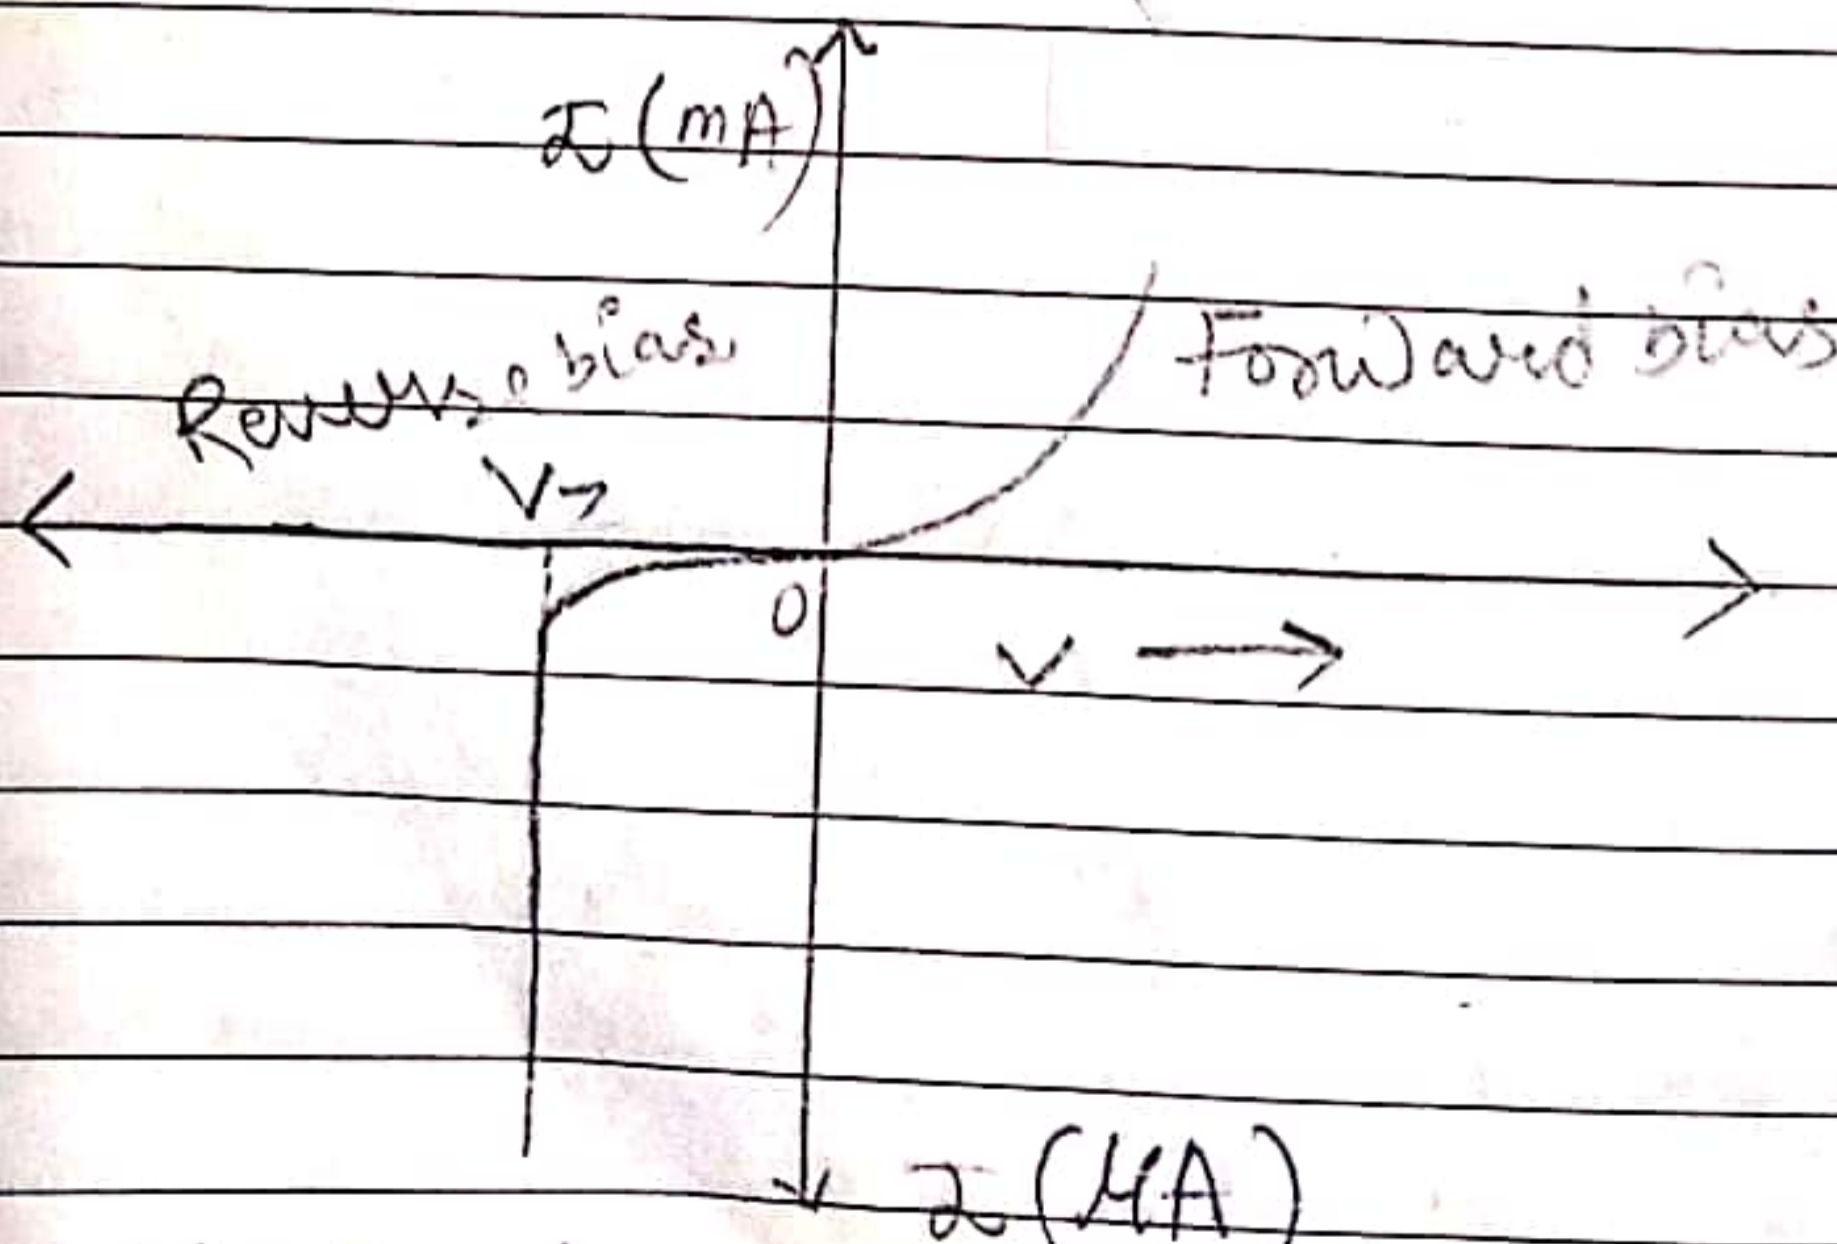 I (mA)
Reverse bias
Forward bias
V→
0
V →
I (μA)